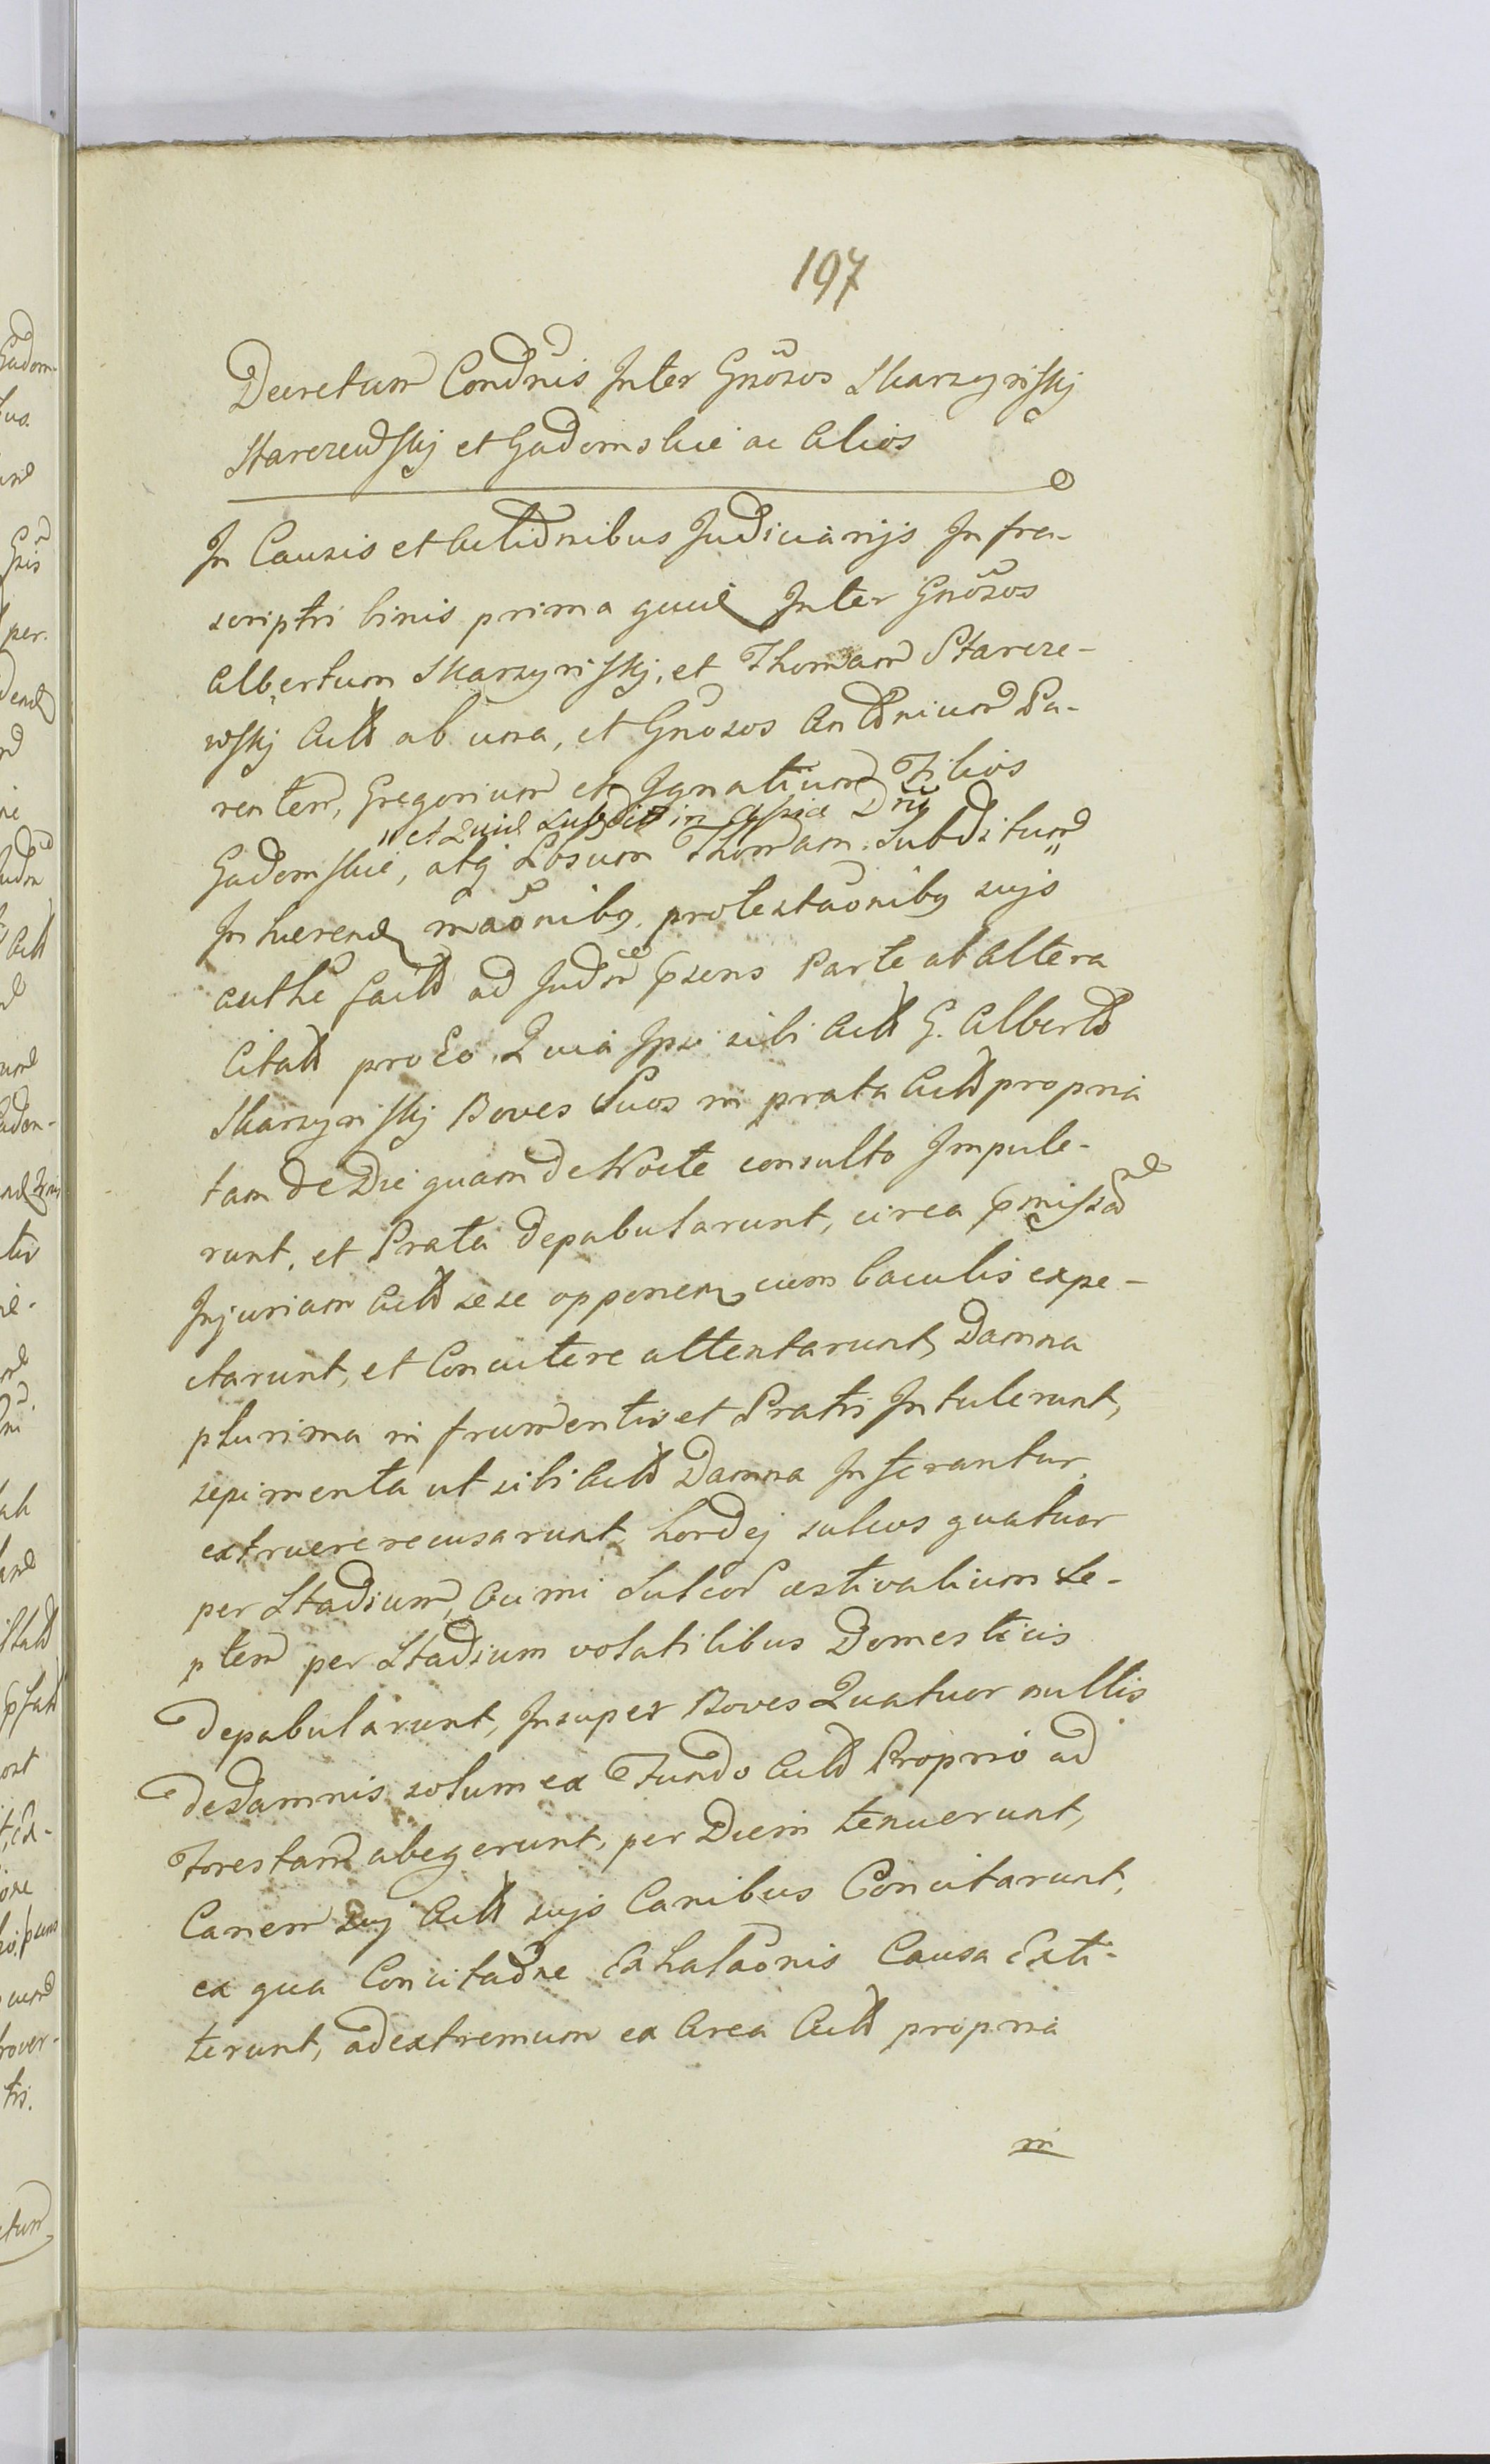 197
Decretum Condnis Inter Gnosos Skarzynskj
Starczewskj et Gadomskie ac Alios
In Causis et Actionibus Judiciarijs Infra-
scriptis binis prima quid Inter Gnosos
Albertum Skarzynskj, et Thomam Starcze-
wskj Actt ab una, et Gnosos Antonium Pa-
rentem, Gregorium et Ignatium Filios
et Quid Subdit in Assia Dni
Gadomskie, atq Lbsum Thomam Subditum
Inhaerend maonibq protestaonibq sujs
authe factt ad Judm psens Parte ab altera
Citatt pro Eo. Quia Ipsi sibi Actt G. Alberto
Skarzynskj Boves Suos in prata Actt propria
tam de Die quam de Nocte consulto Impule-
runt, et Prata depabularunt, circa pmissam
Injuriam Actt sese opponen cum baculis expe-
ctarunt, et Concutere attentarunt, Damna
plurima in frumentis et Pratis Intulerunt,
sepimenta ut sibi Actt Damna Inferantur
extruere recusarunt, hordej sulcos quatuor
per Stadium, Cumi Sulcor aestivalium Se-
ptem per Stadium volatilibus Domesticis
depabularunt, Insuper Boves Quatuor nullis
de damnis solum ex Fundo Actt Proprio ad
Forestam abegerunt, per Diem tenuerunt,
Canem suj Actt sujs Canibus Concitarunt,
ex qua Concitaone Exhalaonis Causa Exti-
terunt, ad extremum ex Area Actt propria
in